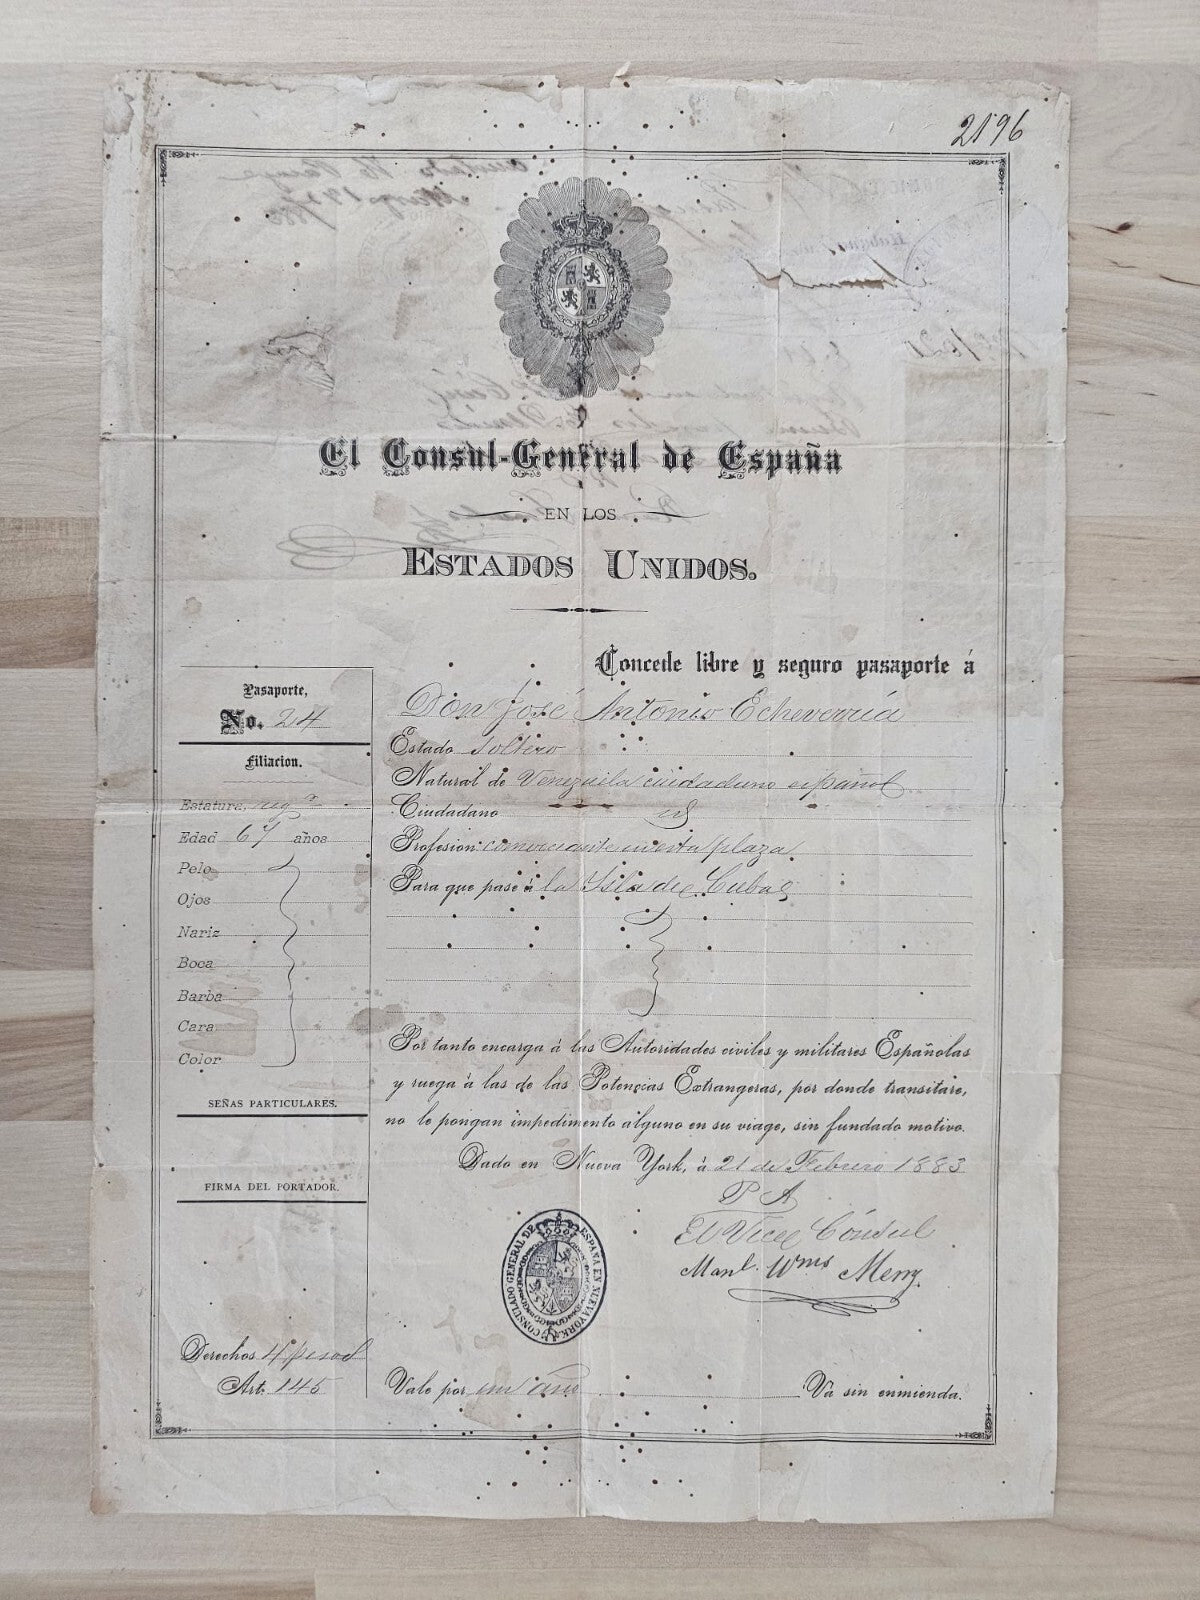 2596
El Consul-General de España
EN LOS
ESTADOS UNIDOS.
Concede libre y seguro pasaporte á
Don José Antonio Echeverría
Estado soltero
Natural de Venezuela ciudadano español
Ciudadano id
Profesion comerciante plaza
Para que pase á la Isla de Cuba
Pasaporte,
No. 24
Filiacion.
Estatura, regª
Edad 67 años
Pelo
Ojos
Nariz
Boca
Barba
Cara
Color
SEÑAS PARTICULARES.
FIRMA DEL PORTADOR.
Por tanto encarga á las Autoridades civiles y militares Españolas
y ruega á las de las Potencias Extrangeras, por donde transitare,
no le pongan impedimento alguno en su viage, sin fundado motivo.
Dado en Nueva York, á 21 de Febrero 1883
P A
El Vice Cónsul
Manl. Wms Merry.
CONSULADO GENERAL DE ESPAÑA EN NUEVA YORK
Derechos 4 pesos
Art. 145
Vale por un año
Va sin enmienda.